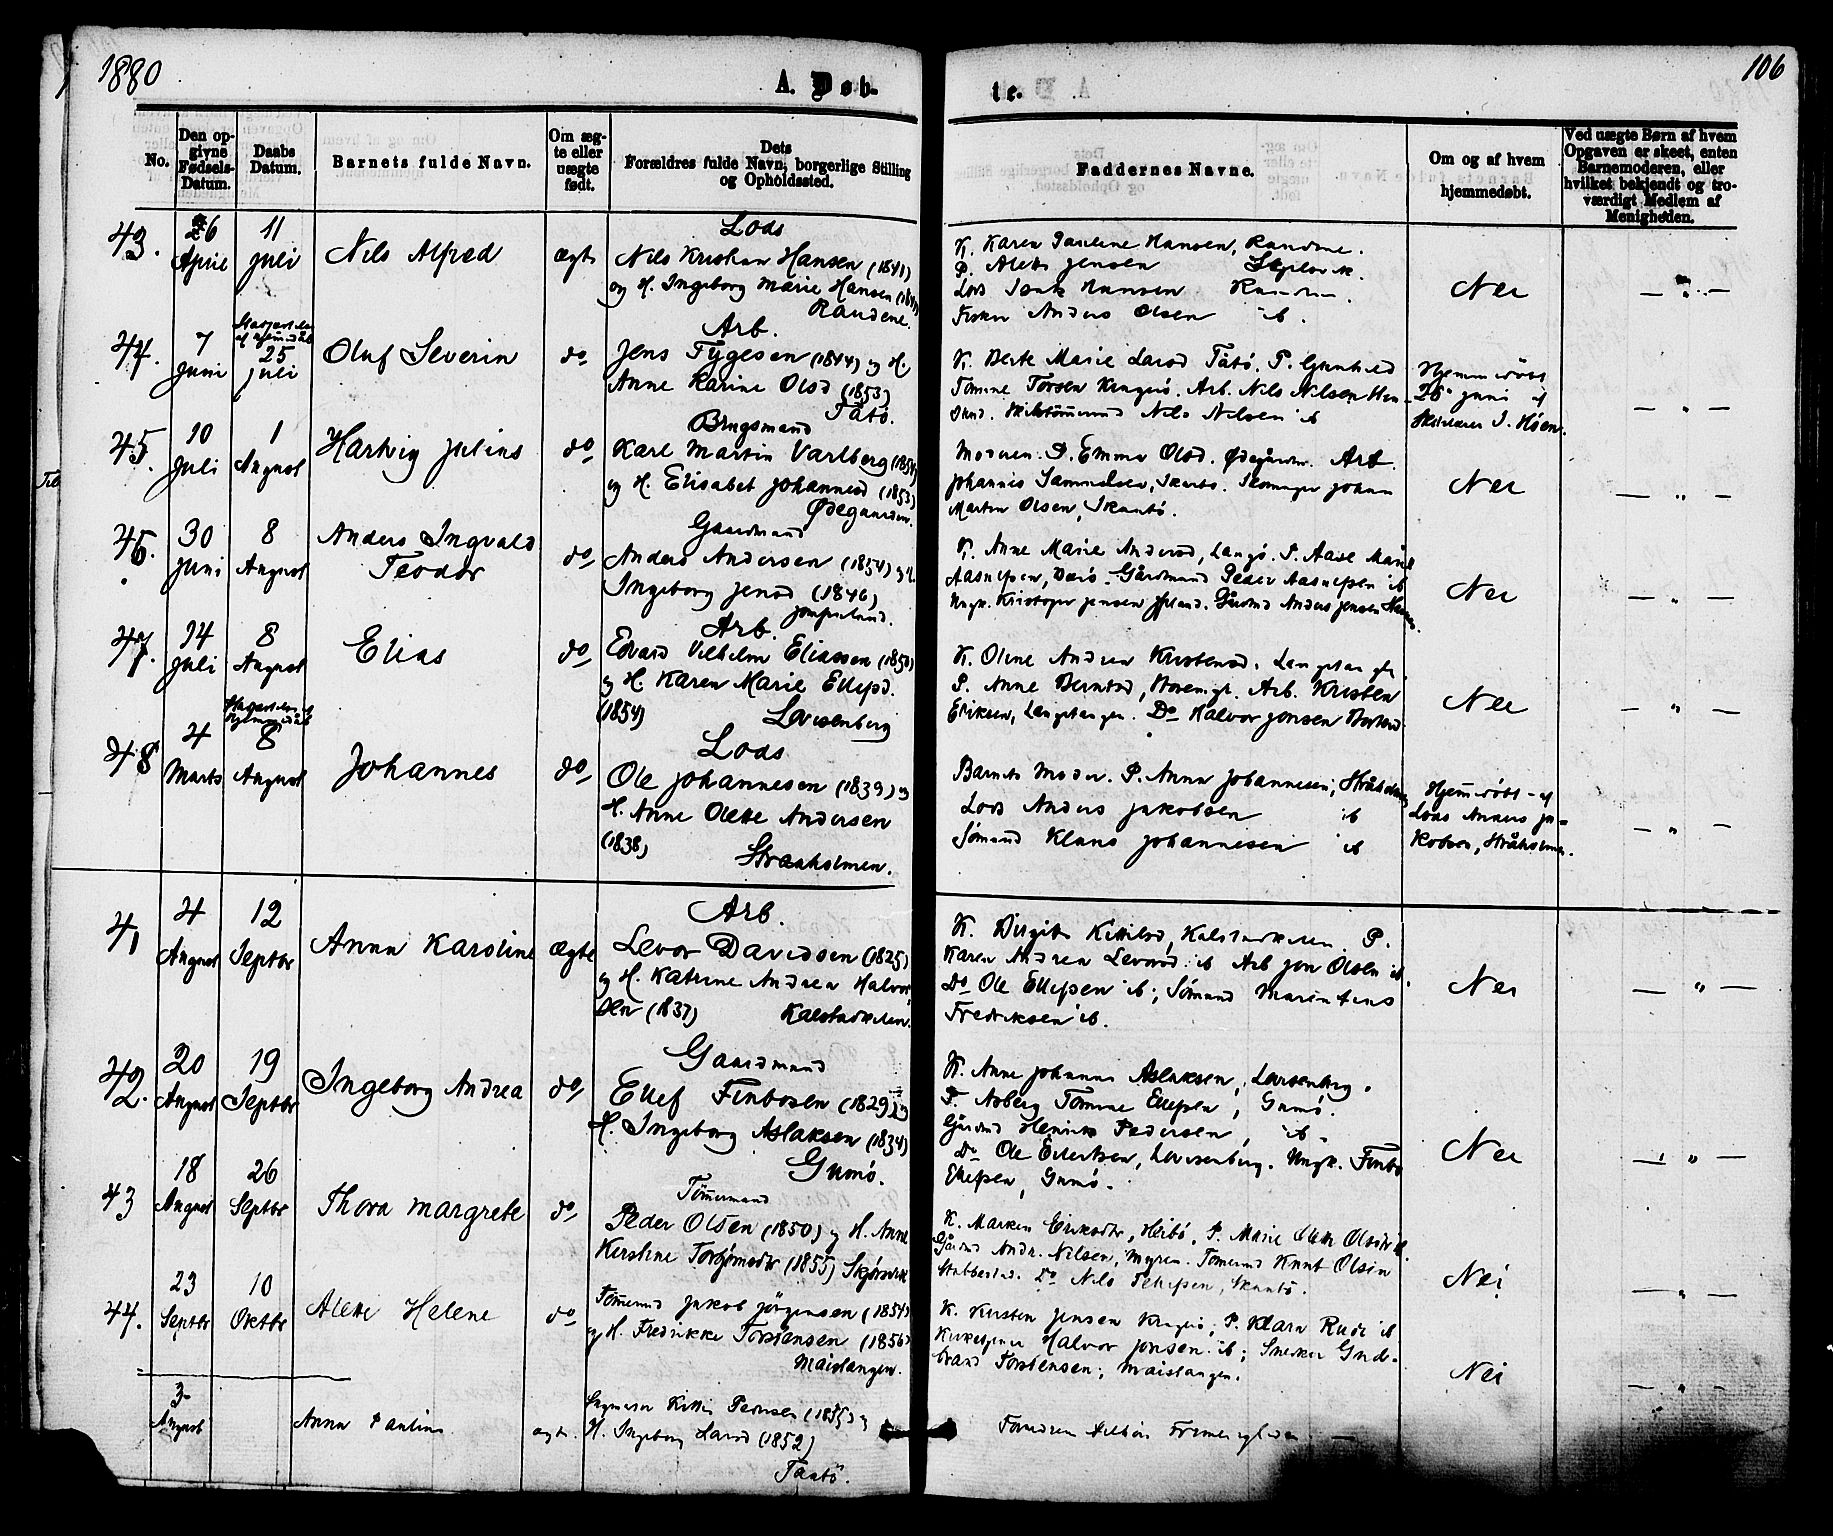 1880
A. Døb-
te.
106
No.
Den op-
givne
Fødsels-
Datum.
Daabs
Datum.
Barnets fulde Navn.
Om æg-
te eller
uægte
født.
Dets
Forældres fulde Navn, borgerlige Stilling
og Opholdssted.
Faddernes Navne.
Om og af hvem
hjemmedøbt.
Ved uægte Børn af hvem
Opgaven er skeet, enten
Barnemoderen, eller
hvilket bekjendt og tro-
værdigt Medlem af
Menigheden.
43.
26
April
11
Juli
Nils Alfred
ægte
Lods
Nils Kristian Hansen (1841)
og H. Ingeborg Marie Hansen
Randene.
K. Karen Pauline Hansen, Randene.
P. Alette Jensen
Lods Isak Hansen
Fisker Anders Olsen ib.
Nei
— „ —
44.
7
Juni
25
Juli
Oluf Severin
do
Arb.
Jens Tygesen (1844) og H.
Anne Karine Olsd (1853)
Tåtø.
K. Berte Marie Larsd Tåtø. P. Gunhild
Tomine Torsen Kragerö. Arb. Nils Nilsen
Nils Nilsen ib
Hjemmedöbt
28 Juni af
Skolelærer J. Höen.
— „ —
45.
10
Juli
1
August
Hartvig Julius
do
Brugsmand
Karl Martin Varlberg (1854)
og H. Elisabet Johannesd (1853)
Ødegaarden.
Moderen. P. Emma Olsd. Ødegården. Arb.
Johannis Samuelsen, Skaatö. Johan
Martin Olsen, Skaatö.
Nei
— „ —
46.
30
Juni
8
August
Anders Ingvald
Teodor
do
Gaardmand
Anders Andersen (1854) og H.
Ingeborg Jensd (1846)
Jomfruland.
K. Anne Marie Andersd, Langö. P. Aase Marie
Aasulfsen, Bærö. Gårdmand Peder Aasulfsen ib
Ungk. Kristofer Jensen Jfrland. Gårdmd Anders Jensen
Nei
— „ —
47.
14
Juli
8
August
Elias
do
Arb.
Edvard Vilhelm Eliassen (1850)
og H. Karen Marie Ellefsd.
(1854) Lovisenberg
K. Oline Andrea Kristensd. Langetangen
P. Anne Berntsd, Arb. Kristen
Eriksen, Langetangen. Do Halvor Jonsen
Nei
— „ —
48
4
Marts
8
August
Johannes
do
Lods
Ole Johannesen (1839) og
H. Anne Olette Andersen
(1838) Straaholmen.
Barnets Moder. P. Anna Johannesen, Stråholmen
Lods Anders Jakobsen ib
Sömand Klaus Johannesen ib
Hjemmedöbt af
Lods Anders Ja-
kobsen, Stråholmen.
— „ —
41
4
August
12
Septbr
Anna Karoline
ægte
Arb.
Levor Davidsen (1825)
og H. Katrine Andrea Halvor
sen (1837) Kalstadkilen.
K. Birgitte Kittilsd, Kalstadkilen. P.
Karen Andrea Levorsd ib Arb Jon Olsen ib.
Do Ole Ellefsen ib; Sömand Marintius
Fredriksen ib.
Nei
— „ —
42.
20
August
19
Septbr
Ingeborg Andrea
do
Gaardmand
Ellef Finbosen (1829) og
H. Ingeborg Aslaksen (1834)
Gumö.
K. Anne Johanne Aslaksen, Lovisenberg.
P. Asberg Tomine Ellefsen, Gumö.
Gårdmd Henrik Pedersen, ib.
Do Ole Evertsen, Lovisenberg. Ungk. Finbo
Ellefsen, Gumö.
Nei
— „ —
43
18
August
26
Septbr
Thora Margrete
do
Tömmermand
Peder Olsen (1850) og H. Anne
Kerstine Torbjörnsdtr (1855) Skjörsvik
K. Marken Eriksdtr, Heibö, P. Marie Olette Olsdtr ib
Gårdmd Andr. Nilsen, Myren. Tömmermd Knut Olsen
Stabbestad. Do Nils Tellefsen, Skaatö.
Nei
— „ —
44.
23
Septbr
10
Oktbr
Alette Helene
do
Tömmermd Jakob Jörgensen (1854)
og H. Fredrikke Torstensen (1856)
Maistangen.
K. Kirsten Jensen Kragerö; P. Klara Rudi ib
Halvor Jonsen ib; Snedker Gud-
brand Torstensen, Maistangen.
Nei
— „ —
3
August
Anna Pauline
ægte.
Kittil Pedersen (1855) og
H. Ingeborg Larsd (1852)
Taatö.